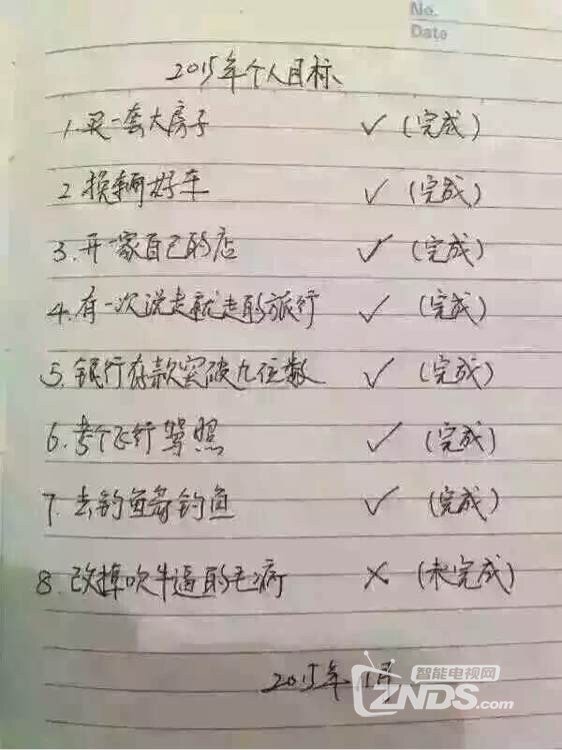 No.
Date
2015年个人目标
1.买一套大房子 ✓ (完成)
2.换辆好车 ✓ (完成)
3.开一家自己的店 ✓ (完成)
4.有一次说走就走的旅行 ✓ (完成)
5.银行存款突破九位数 ✓ (完成)
6.考个飞行驾照 ✓ (完成)
7.去钓鱼岛钓鱼 ✓ (完成)
8.改掉吹牛逼的毛病 ✗ (未完成)
2015年11月
智能电视网
ZNDS.com